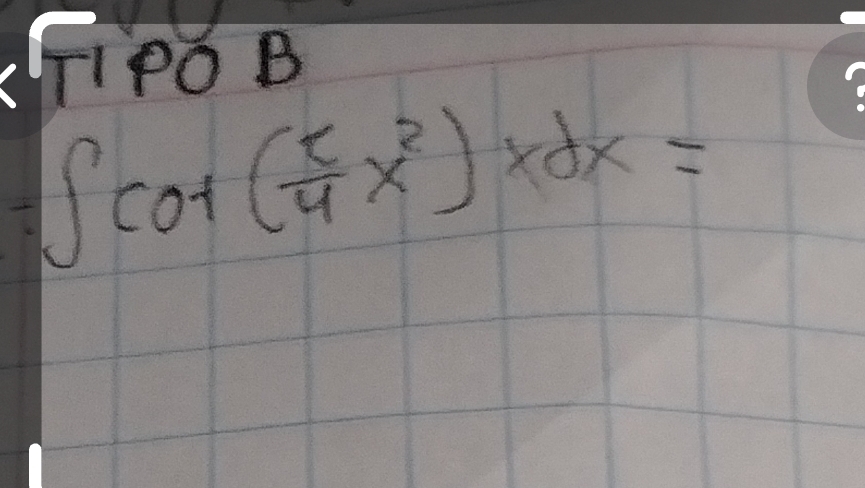 TIPO B
= ∫ cot (τ/4 x²) x dx =